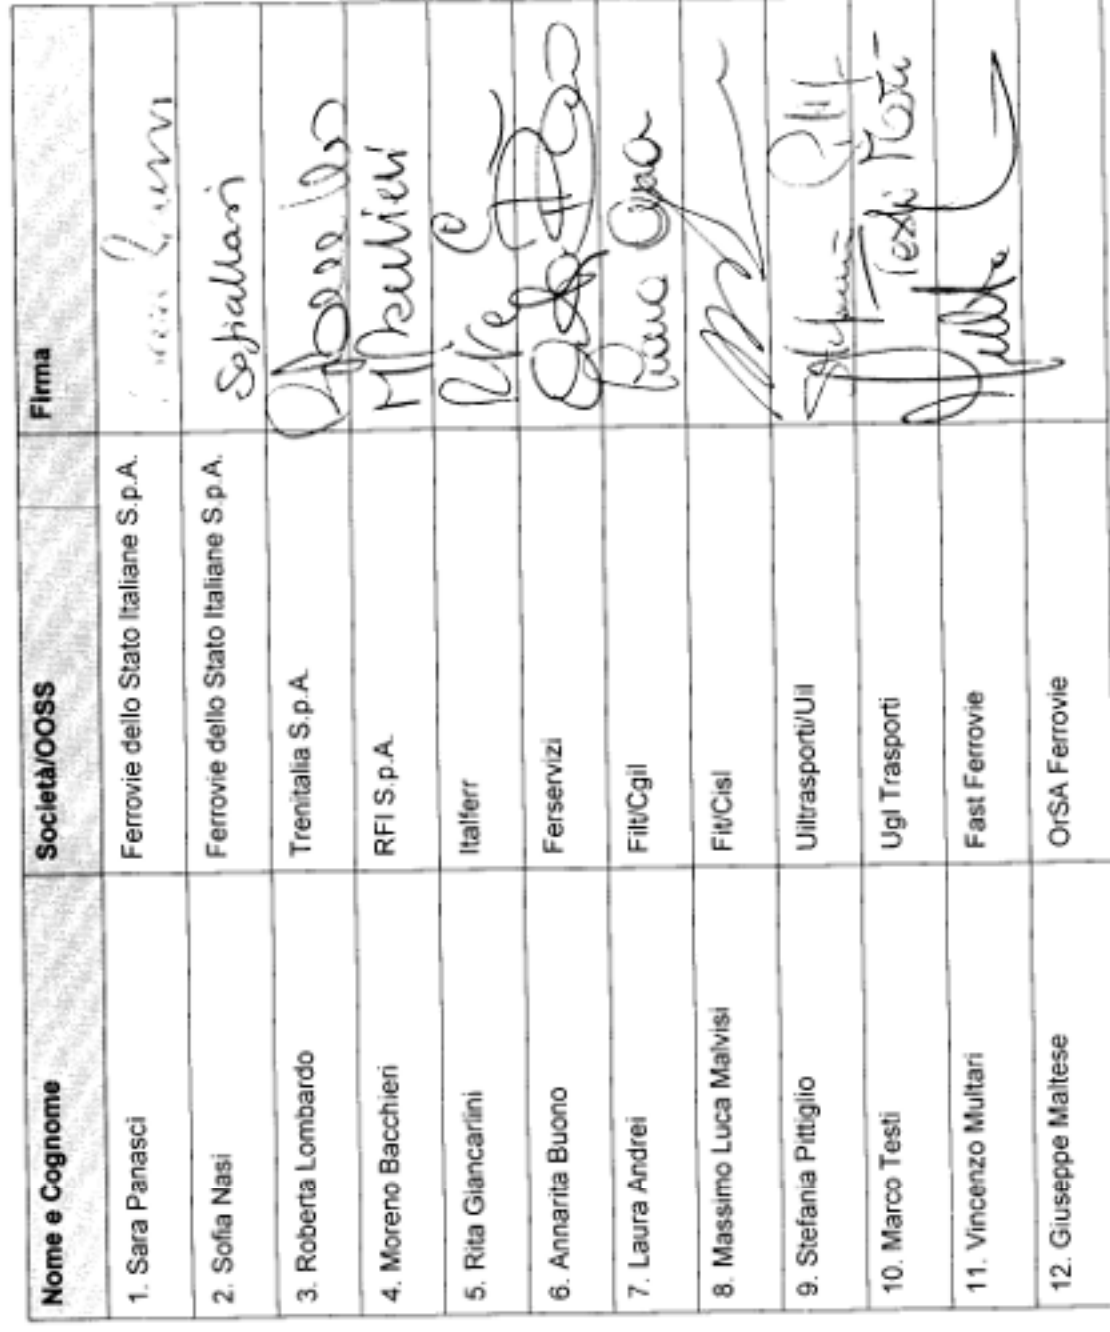 Nome e Cognome Società/OOSS Firma
1. Sara Panasci Ferrovie dello Stato Italiane S.p.A.
2. Sofia Nasi Ferrovie dello Stato Italiane S.p.A. Sofia Nasi
3. Roberta Lombardo Trenitalia S.p.A.
4. Moreno Bacchieri RFI S.p.A.
5. Rita Giancarlini Italferr
6. Annarita Buono Ferservizi
7. Laura Andrei Filt/Cgil
8. Massimo Luca Malvisi Fit/Cisl
9. Stefania Pittiglio Uiltrasporti/Uil
10. Marco Testi Ugl Trasporti Testi
11. Vincenzo Multari Fast Ferrovie
12. Giuseppe Maltese OrSA Ferrovie